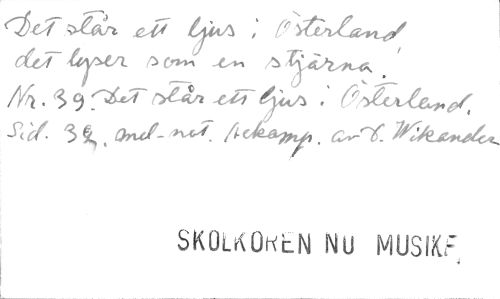 Det står ett ljus i Österland,
det lyser som en stjärna.
Nr. 39. Det står ett ljus i Österland.
Sid. 32. mel-not. av D. Wikander
SKOLKÖREN NU MUSIKE